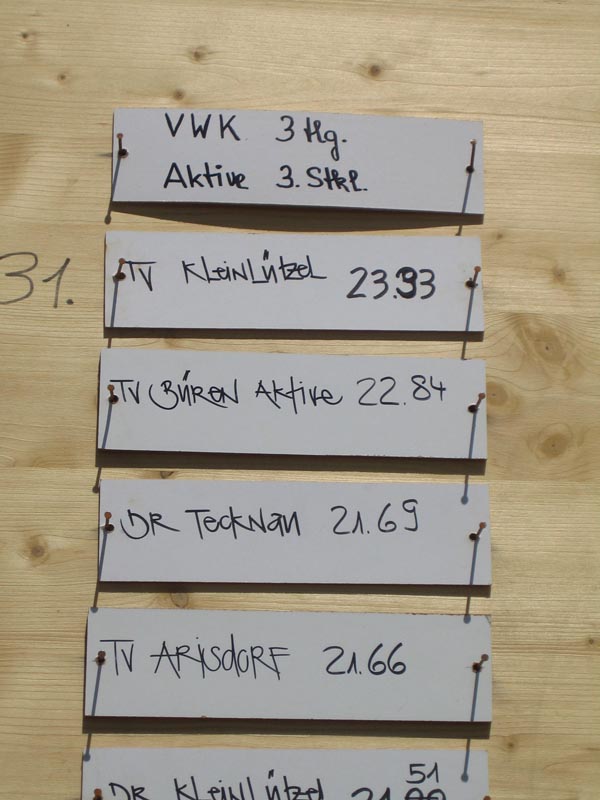 VWK 3tlg.
Aktive 3. Stkl.
31.
TV Kleinlützel 23.93
TV Büren Aktive 22.84
DR Tecknau 21.69
TV Arisdorf 21.66
51
DR Kleinlützel 21.